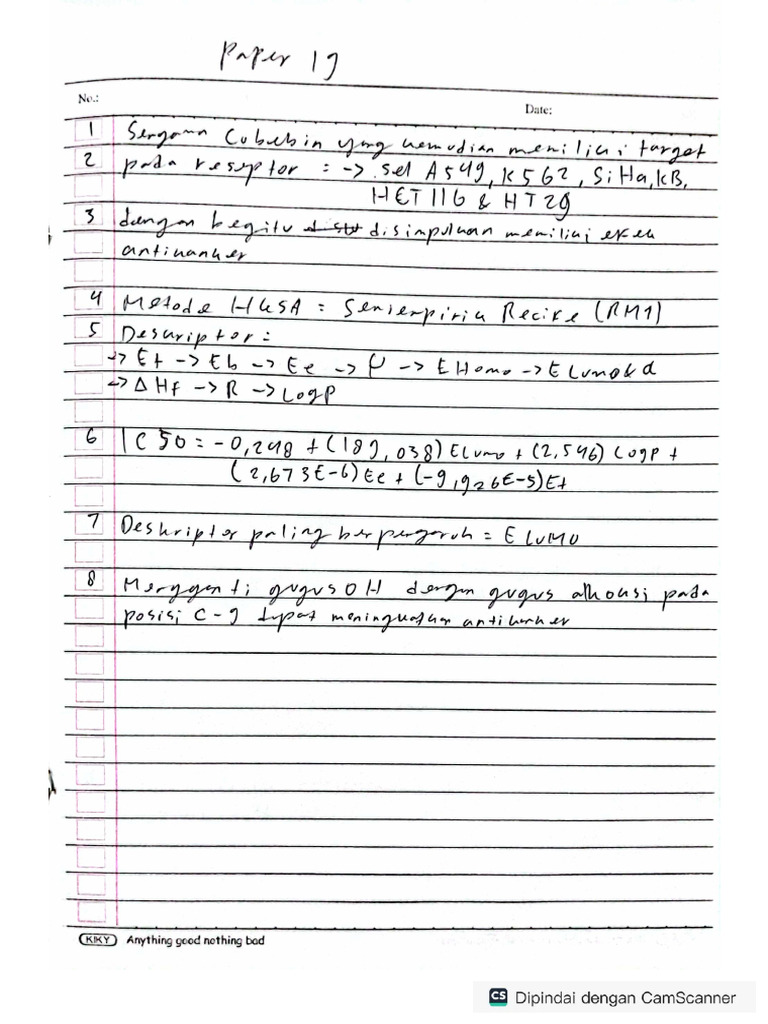 Paper 19
No.:
Date:
1 Senyawa Cubebin yang kemudian memiliki target
2 pada reseptor = -> sel A549, K562, SiHa, KB,
HCT116 & HT29
3 dengan begitu disimpulkan memiliki efek
antikanker
4 Metode HKSA = Semiempirik Recife (RM1)
5 Deskriptor =
-> Et -> Eb -> Ee -> μ -> E Homo -> E Lumo & α
-> Δ Hf -> R -> LogP
6 IC 50 = -0,248 + (189,038) ELumo + (2,546) LogP +
(2,673E-6) Ee + (-9,926E-5) Et
7 Deskriptor paling berpengaruh = E LUMO
8 Mengganti gugus OH dengan gugus alkoksi pada
posisi C-9 dapat meningkatkan antikanker
KIKY Anything good nothing bad
CS Dipindai dengan CamScanner